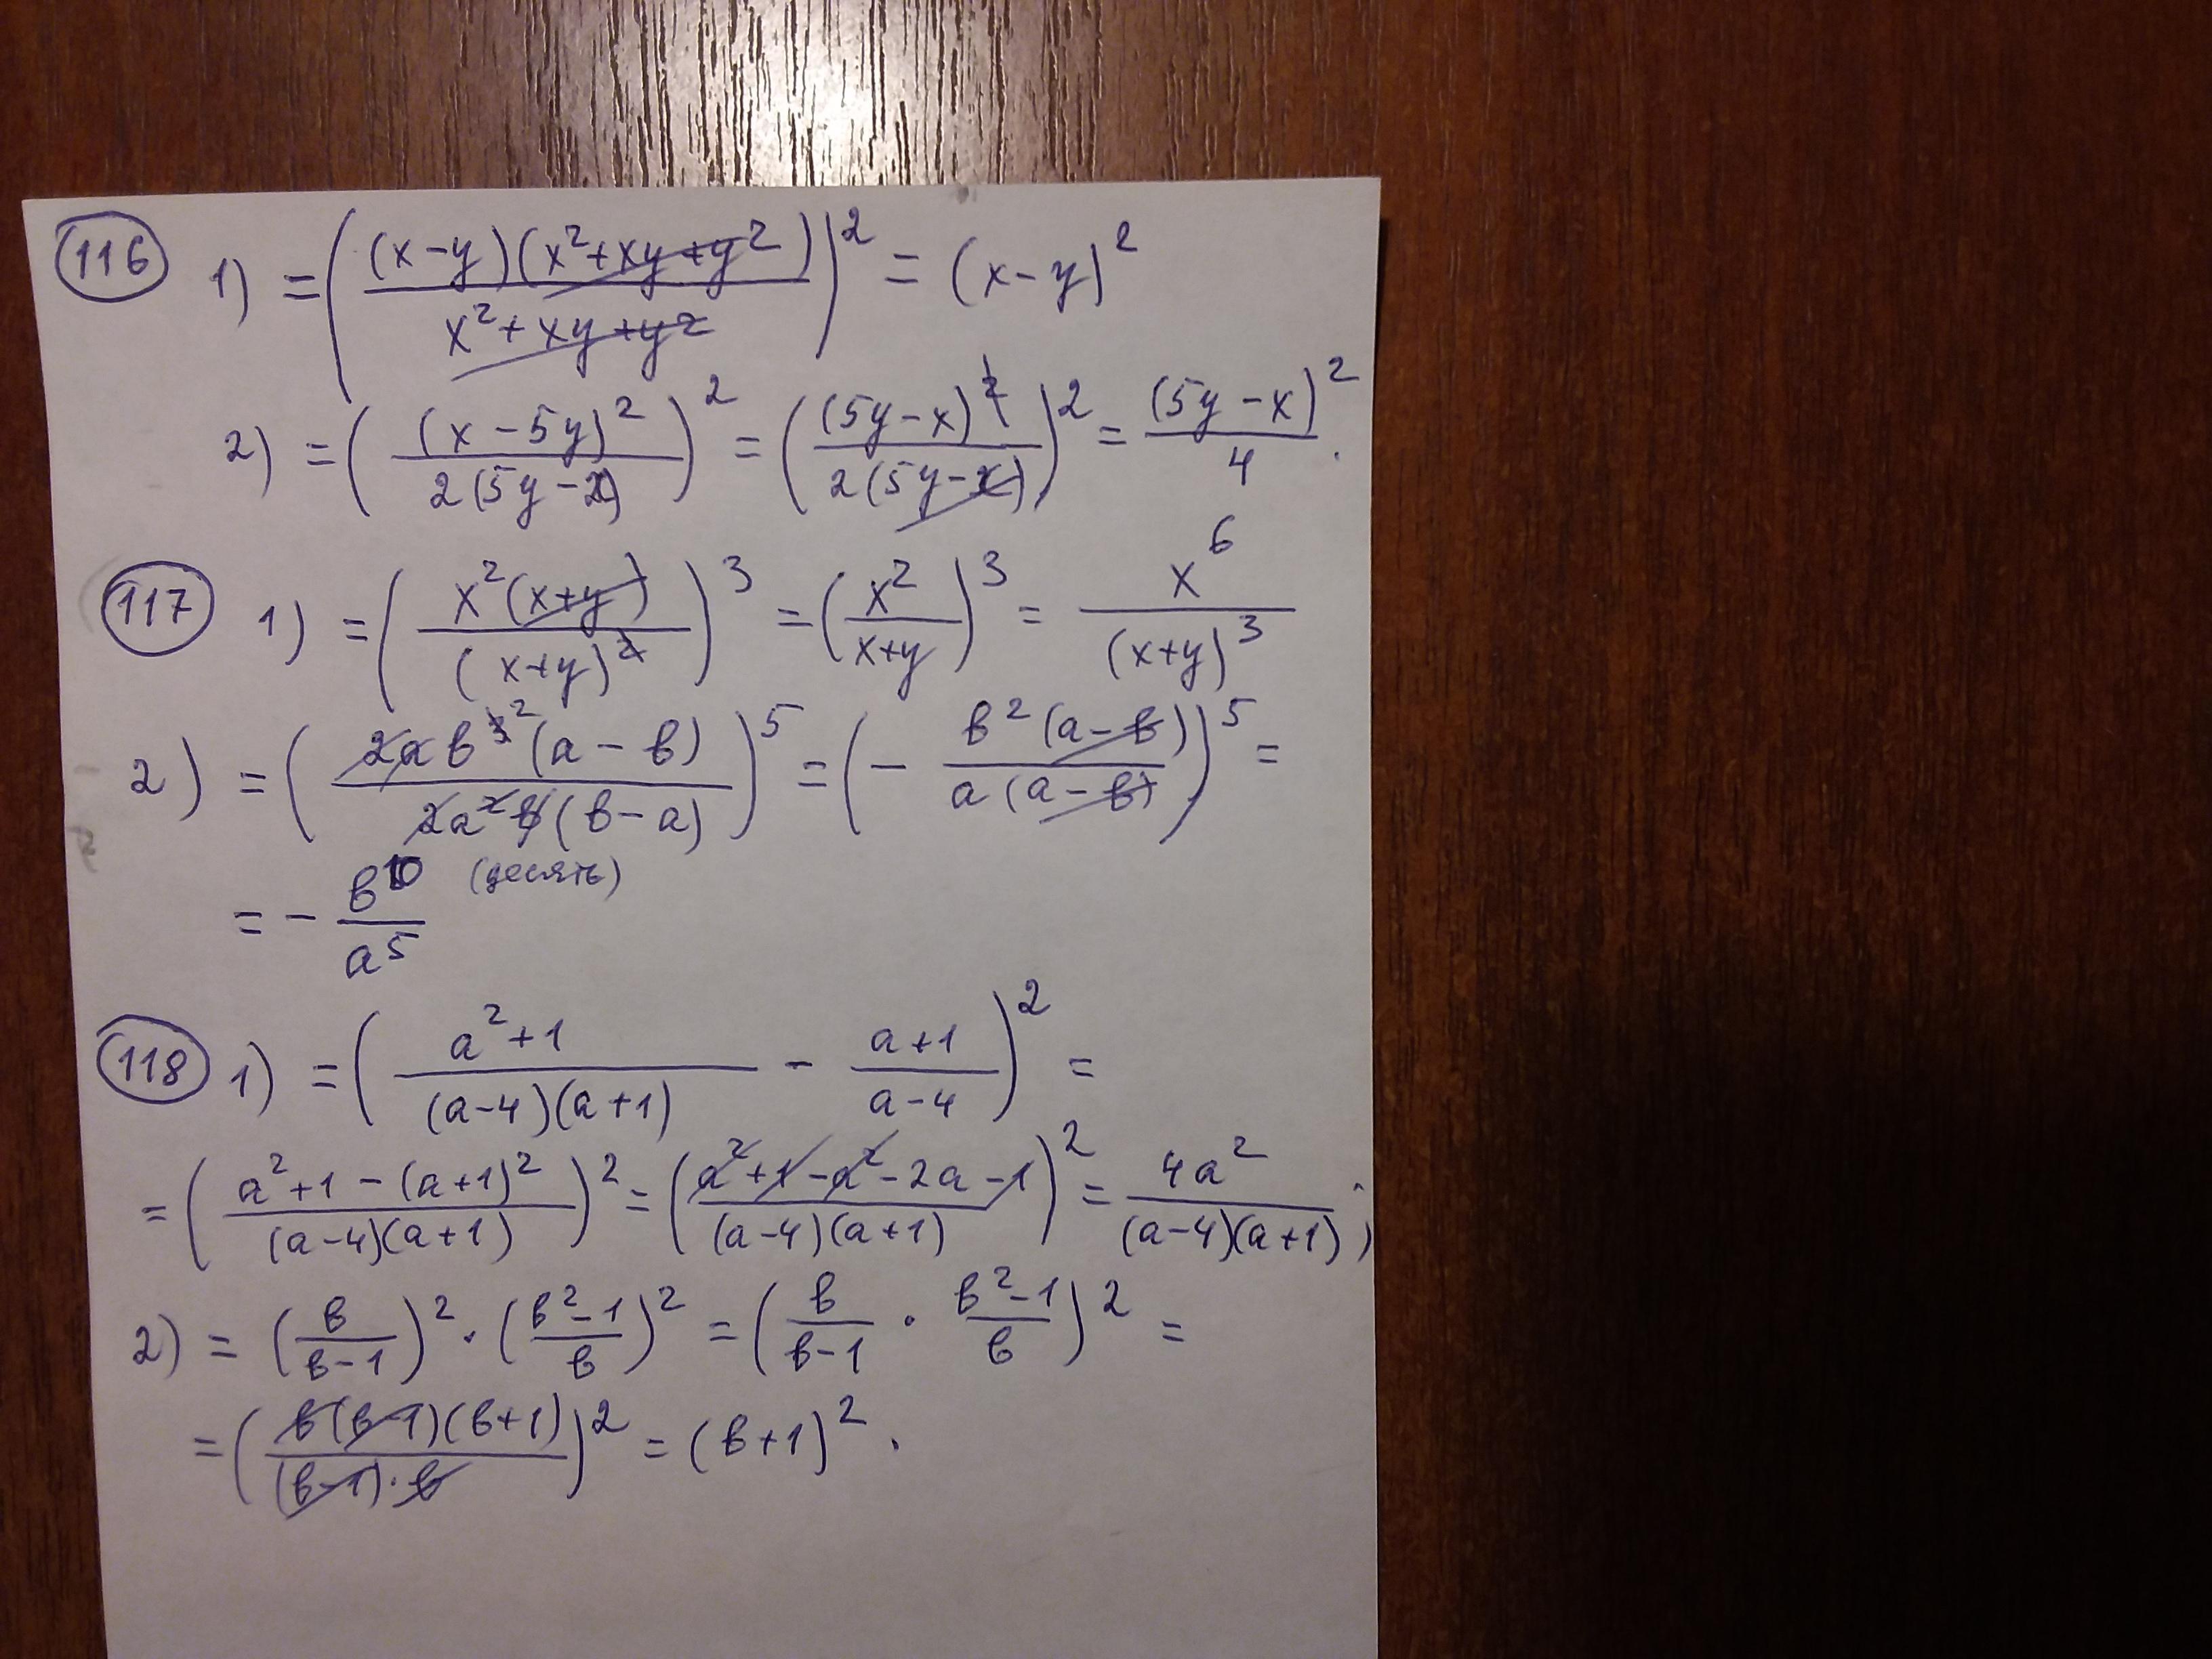 116 1) = ((x-y)(x²+xy+y²) / x²+xy+y²)² = (x-y)²
2) = ((x-5y)² / 2(5y-x))² = ((5y-x)² / 2(5y-x))² = (5y-x)² / 4.
117 1) = (x²(x+y) / (x+y)²)³ = (x² / x+y)³ = x⁶ / (x+y)³
2) = (2ab³ ²(a-b) / 2a²b(b-a))⁵ = (- b²(a-b) / a(a-b))⁵ =
= - b¹⁰ / a⁵ (десять)
118 1) = (a²+1 / (a-4)(a+1) - a+1 / a-4)² =
= (a²+1-(a+1)² / (a-4)(a+1))² = (a²+1-a²-2a-1 / (a-4)(a+1))² = 4a² / (a-4)(a+1);
2) = (b / b-1)² · (b²-1 / b)² = (b / b-1 · b²-1 / b)² =
= (b(b-1)(b+1) / (b-1)·b)² = (b+1)².